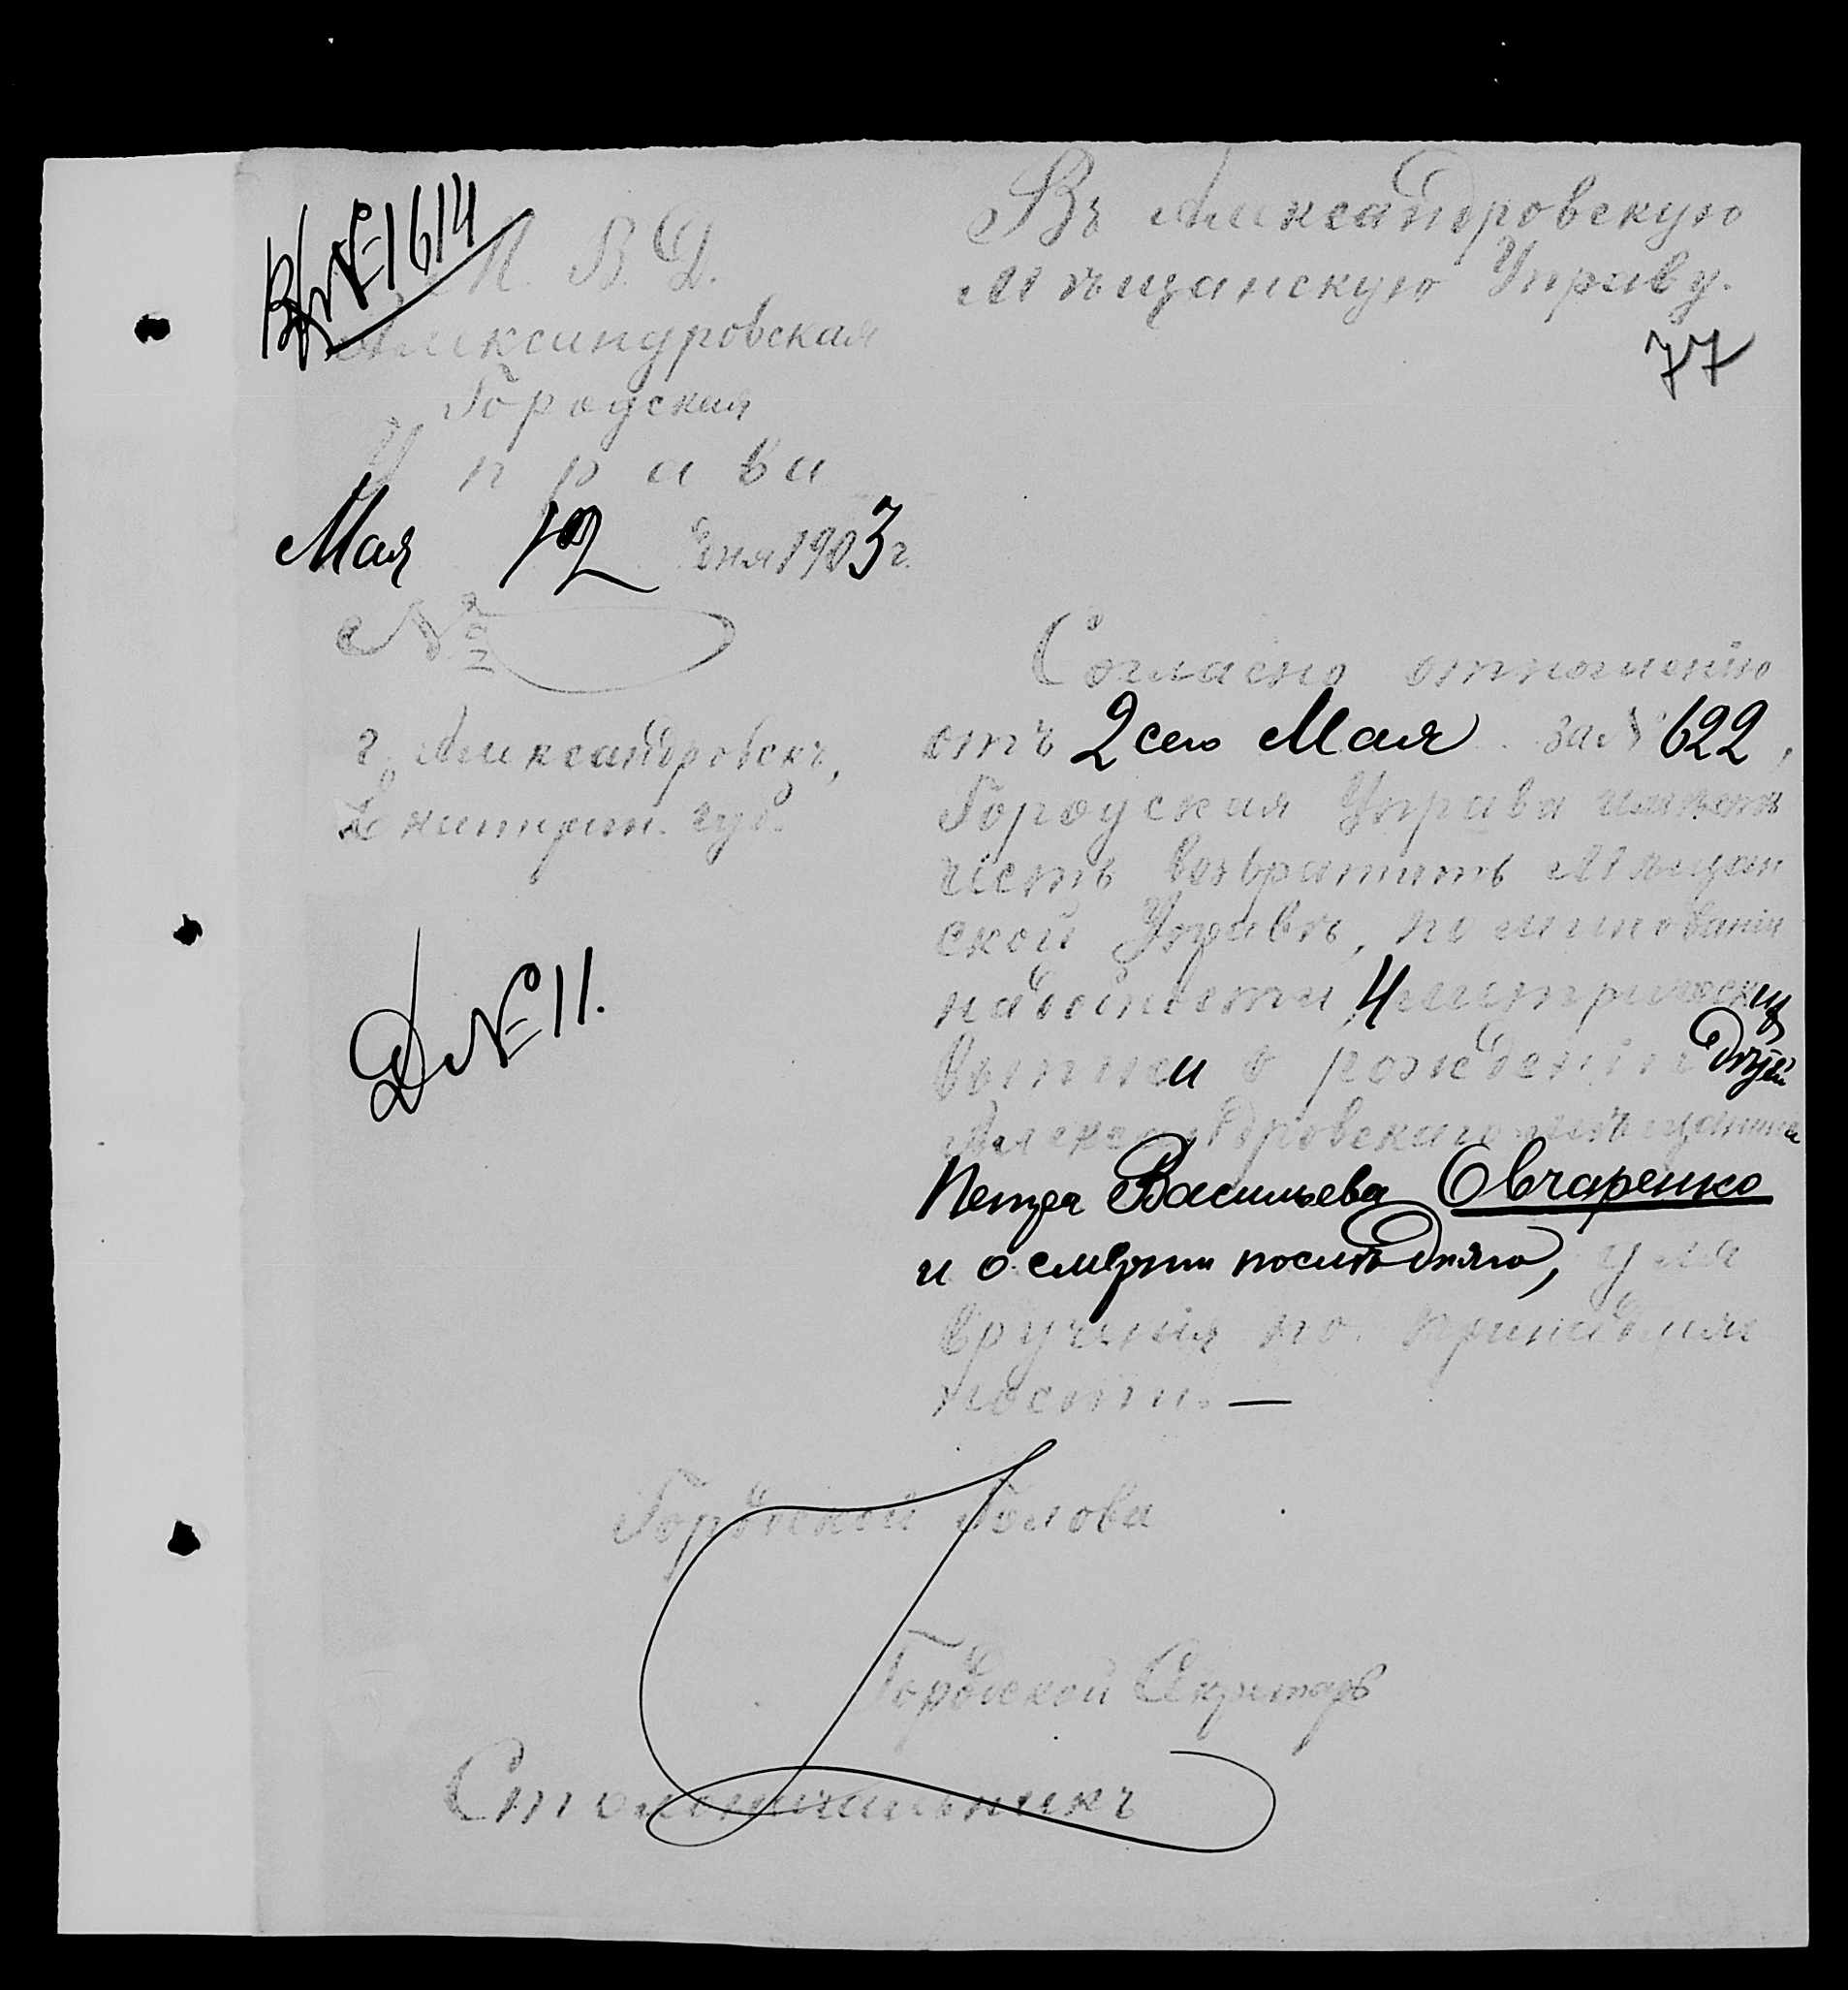 Вх№1614
М. В. Д.
Александровская
Городская
Управа
Мая 12 дня 1903 г.
№
г. Александровскъ,
Екатерин. губ.
Д №11.
Въ Александровскую
Мѣщанскую Управу.
77
Согласно отношенію
отъ 2 сего Мая за № 622,
Городская Управа имѣетъ
честь возвратить Мѣщан
ской Управѣ, по минованіи
надобности, 4 метрическихъ
выписи о рожденіи дѣтей
Александровскаго мѣщанина
Петра Васильева Овчаренко
и о смерти послѣдняго, для
врученія по принадлеж
ности.—
Городской Голова
Городской Секретарь
Столоначальникъ